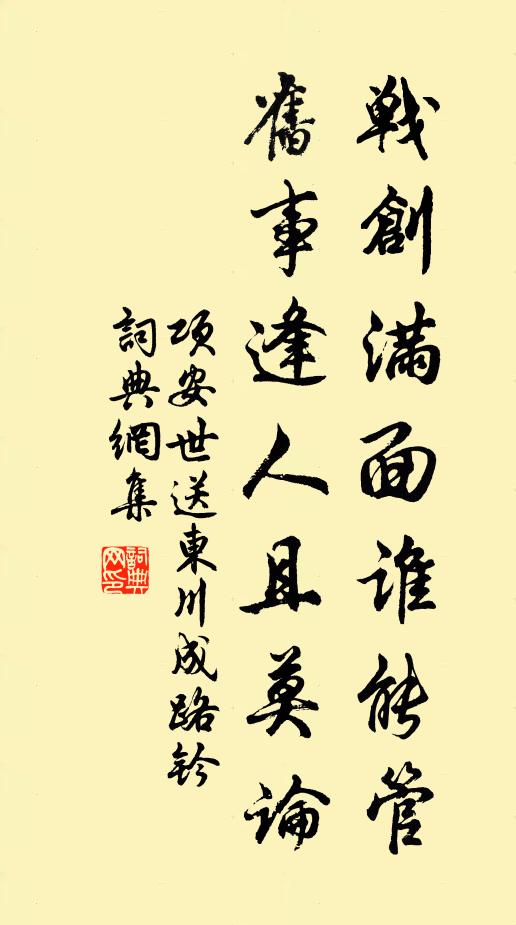 戰創滿面誰能管
舊事逢人且莫論
项安世送東川成路鈐
詞典網集
詞典网印